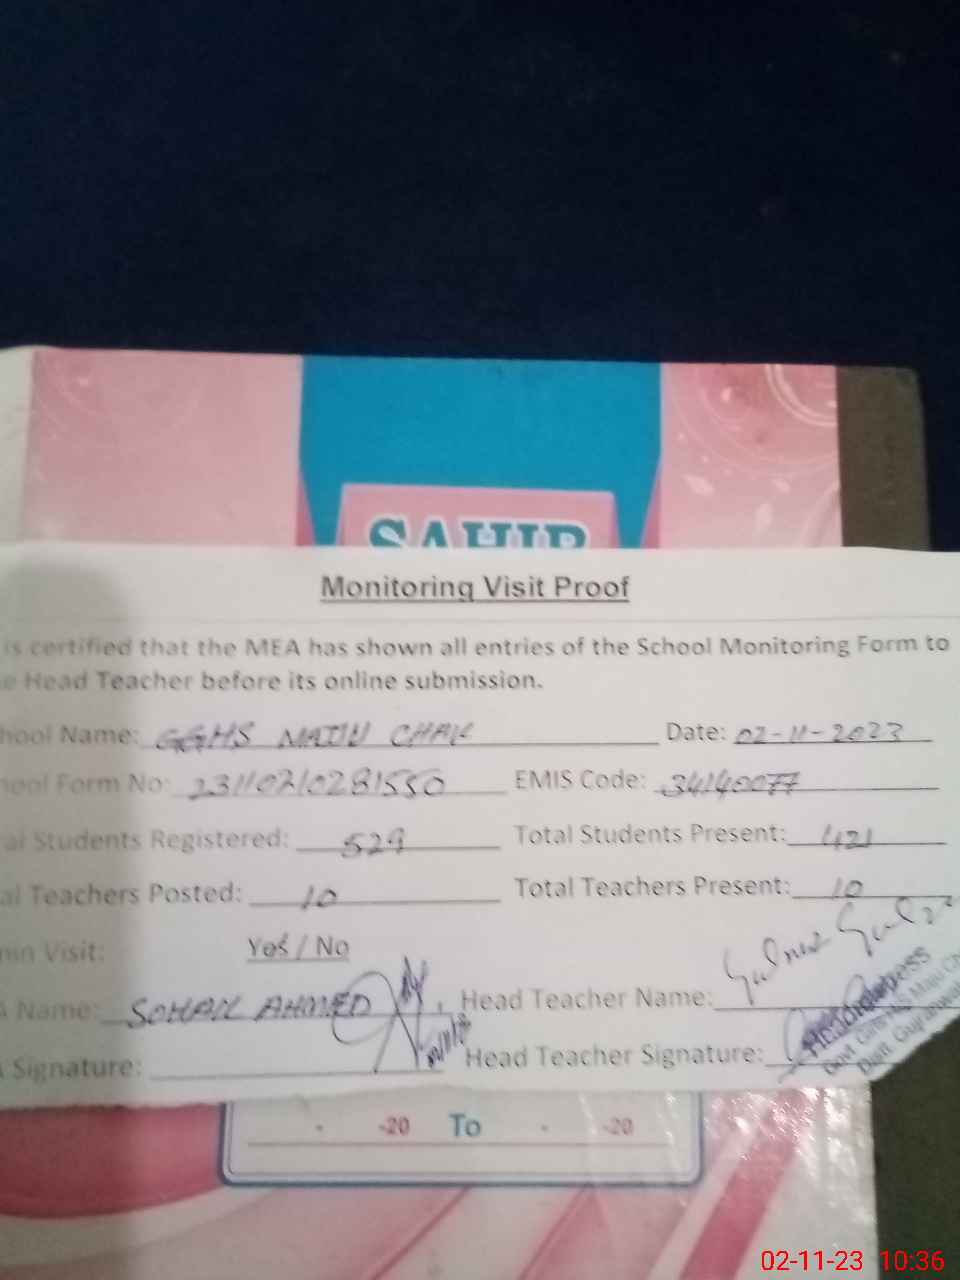 SAHIR
Monitoring Visit Proof
is certified that the MEA has shown all entries of the School Monitoring Form to
e Head Teacher before its online submission.
hool Name: GGHS MAJU CHAK Date: 02-11-2023
hool Form No: 23110210281550 EMIS Code: 34140077
al Students Registered: 529 Total Students Present: 421
al Teachers Posted: 10 Total Teachers Present: 10
min Visit: Yes / No
A Name: SOHAIL AHMED Head Teacher Name:
Signature: Head Teacher Signature:
Headmistress
Govt Girls H/S Maju Ch
Distt. Gujranwal
- -20 To - -20
02-11-23 10:36